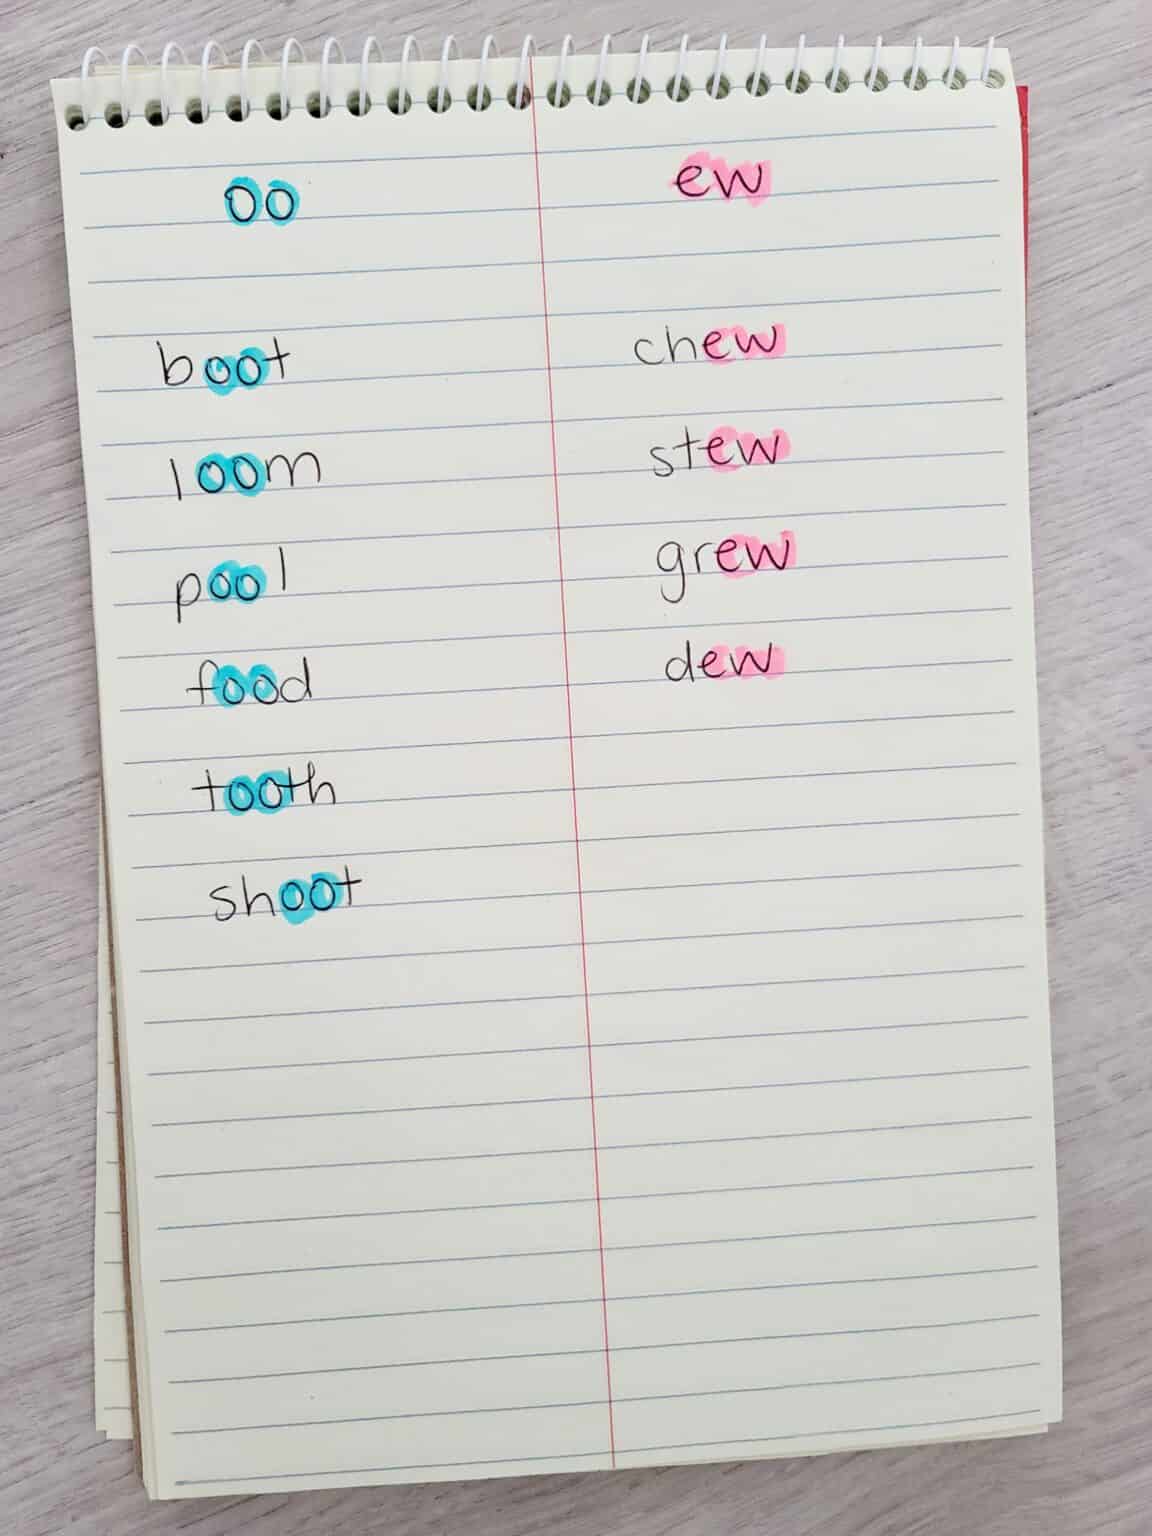 oo ew
boot chew
loom stew
pool grew
food dew
tooth
shoot